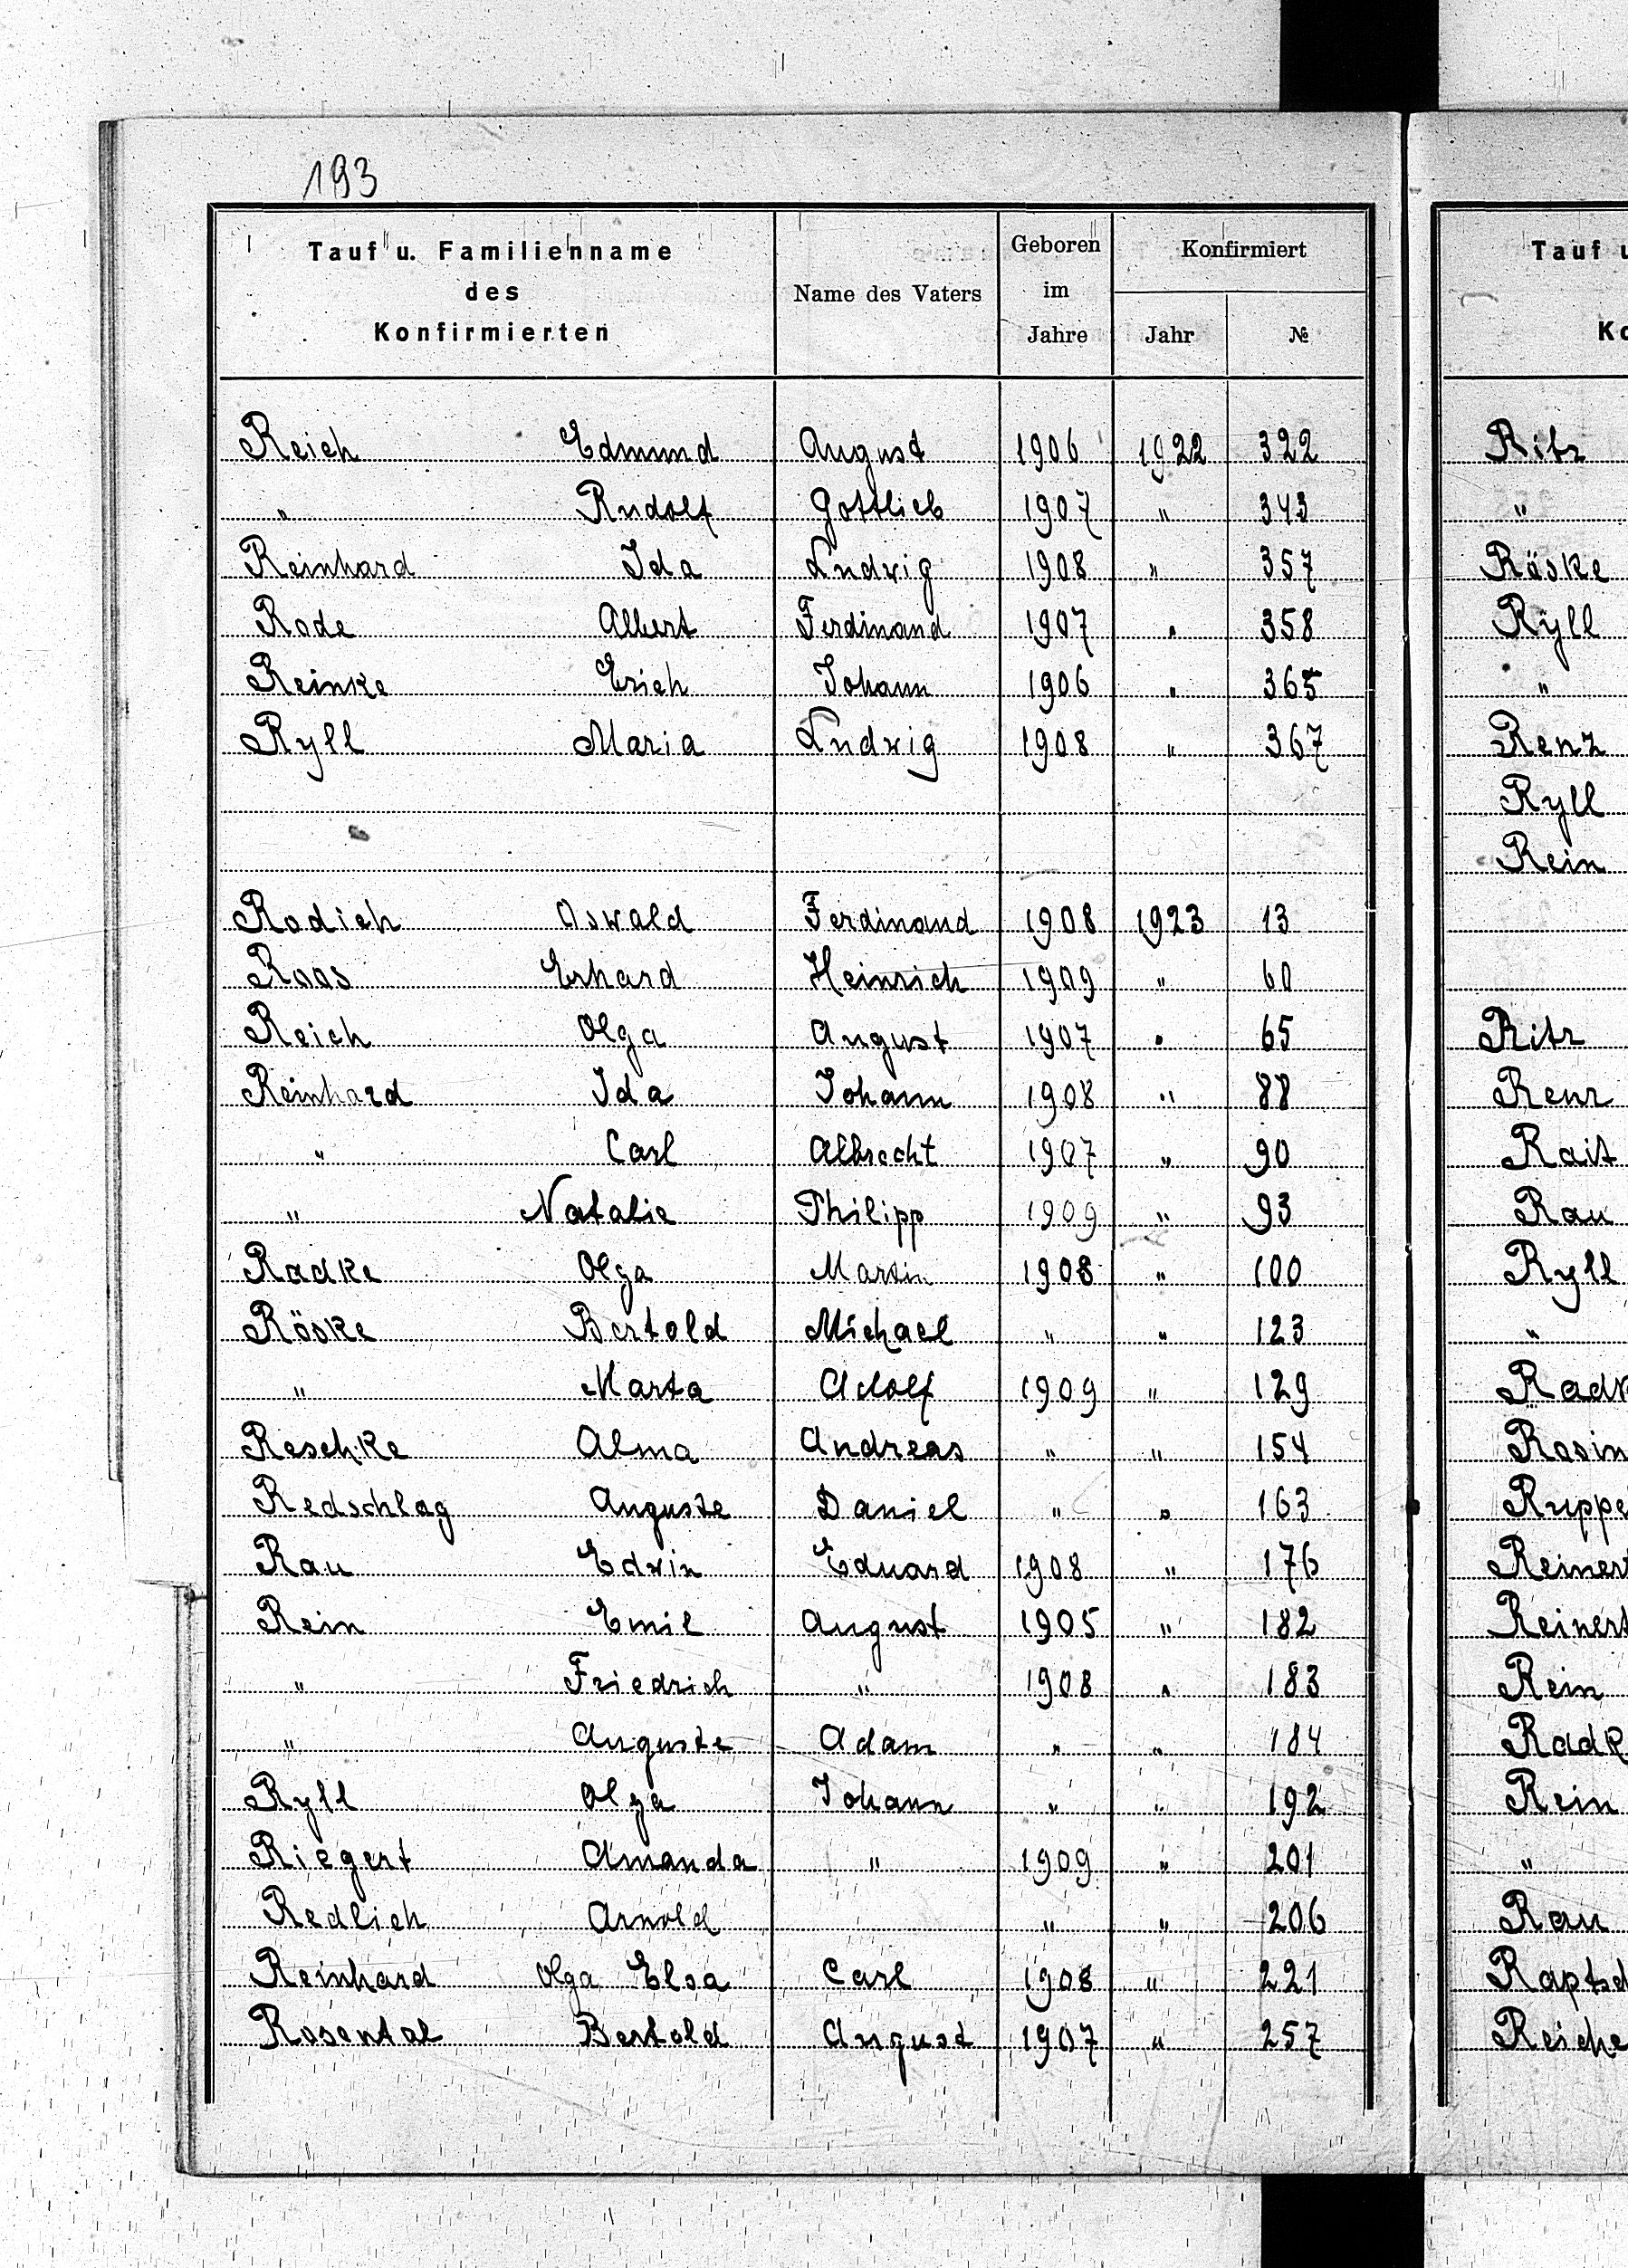 193
Tauf u. Familienname des Konfirmierten | Name des Vaters | Geboren im Jahre | Konfirmiert Jahr | №
Reich Edmund August 1906 1922 322
" Rudolf Gottlieb 1907 " 343
Reinhard Ida Ludwig 1908 " 357
Rode Albert Ferdinand 1907 " 358
Reinke Erich Johann 1906 " 365
Ryll Maria Ludwig 1908 " 367
Rodich Oswald Ferdinand 1908 1923 13
Roos Erhard Heinrich 1909 " 60
Reich Olga August 1907 " 65
Reinhard Ida Johann 1908 " 88
" Carl Albrecht 1907 " 90
" Natalie Philipp 1909 " 93
Radke Olga Martin 1908 " 100
Röske Bertold Michael " " 123
" Marta Adolf 1909 " 129
Reschke Alma Andreas " " 154
Redschlag Auguste Daniel " " 163
Rau Edwin Eduard 1908 " 176
Rein Emil August 1905 " 182
" Friedrich " 1908 " 183
" Auguste Adam " " 184
Ryll Olga Johann " " 192
Riegert Amanda " 1909 " 201
Redlich Arnold " " 206
Reinhard Olga Elsa Carl 1908 " 221
Rosental Bertold August 1907 " 257
Tauf u
Ko
Ritz
"
Röske
Ryll
"
Renz
Ryll
Rein
Ritz
Renz
Rait
Rau
Ryll
"
Radk
Rosin
Ruppe
Reinert
Reinert
Rein
Radk
Rein
"
Rau
Raptsch
Reiche